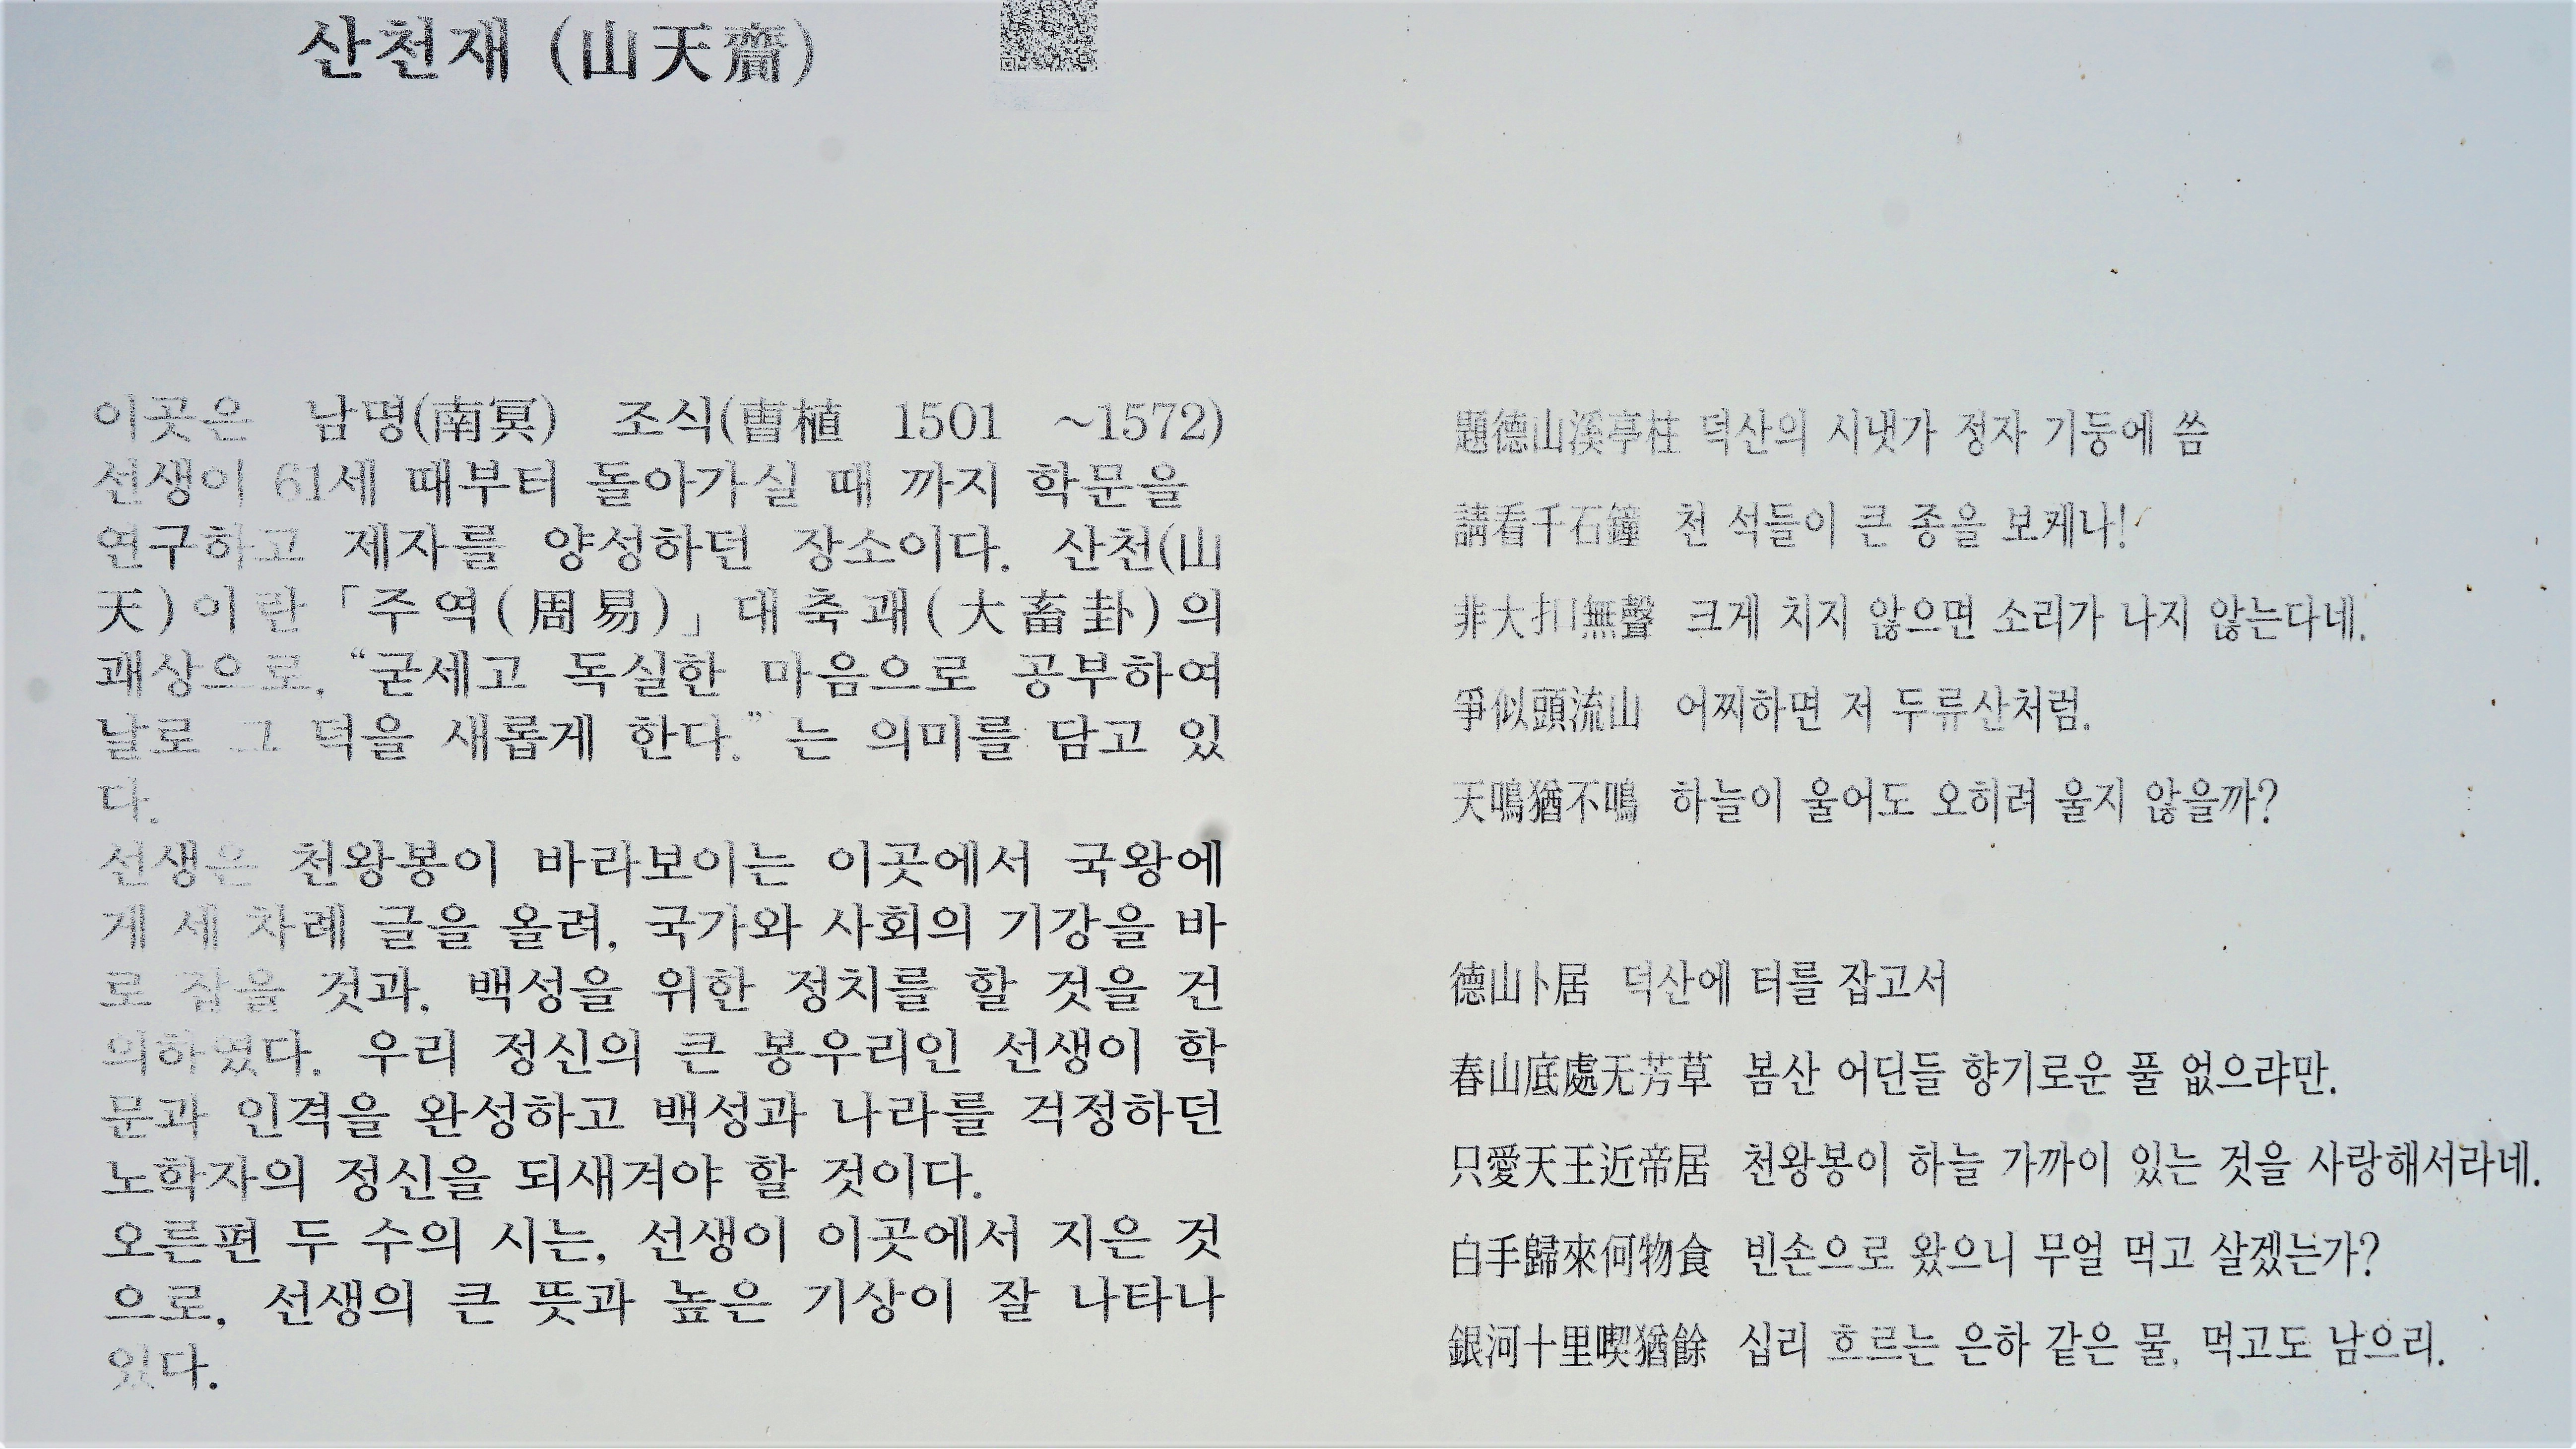 산천재 (山天齋)
이곳은 남명(南冥) 조식(曺植 1501 ~1572)
선생이 61세 때부터 돌아가실 때 까지 학문을
연구하고 제자를 양성하던 장소이다. 산천(山
天)이란「주역(周易)」대축괘(大畜卦)의
괘상으로, “굳세고 독실한 마음으로 공부하여
날로 그 덕을 새롭게 한다.” 는 의미를 담고 있
다.
선생은 천왕봉이 바라보이는 이곳에서 국왕에
게 세 차례 글을 올려, 국가와 사회의 기강을 바
로 잡을 것과, 백성을 위한 정치를 할 것을 건
의하였다. 우리 정신의 큰 봉우리인 선생이 학
문과 인격을 완성하고 백성과 나라를 걱정하던
노학자의 정신을 되새겨야 할 것이다.
오른편 두 수의 시는, 선생이 이곳에서 지은 것
으로, 선생의 큰 뜻과 높은 기상이 잘 나타나
있다.
題德山溪亭柱 덕산의 시냇가 정자 기둥에 씀
請看千石鐘 천 석들이 큰 종을 보게나!
非大扣無聲 크게 치지 않으면 소리가 나지 않는다네.
爭似頭流山 어찌하면 저 두류산처럼.
天鳴猶不鳴 하늘이 울어도 오히려 울지 않을까?
德山卜居 덕산에 터를 잡고서
春山底處无芳草 봄산 어딘들 향기로운 풀 없으랴만.
只愛天王近帝居 천왕봉이 하늘 가까이 있는 것을 사랑해서라네.
白手歸來何物食 빈손으로 왔으니 무얼 먹고 살겠는가?
銀河十里喫猶餘 십리 흐르는 은하 같은 물, 먹고도 남으리.